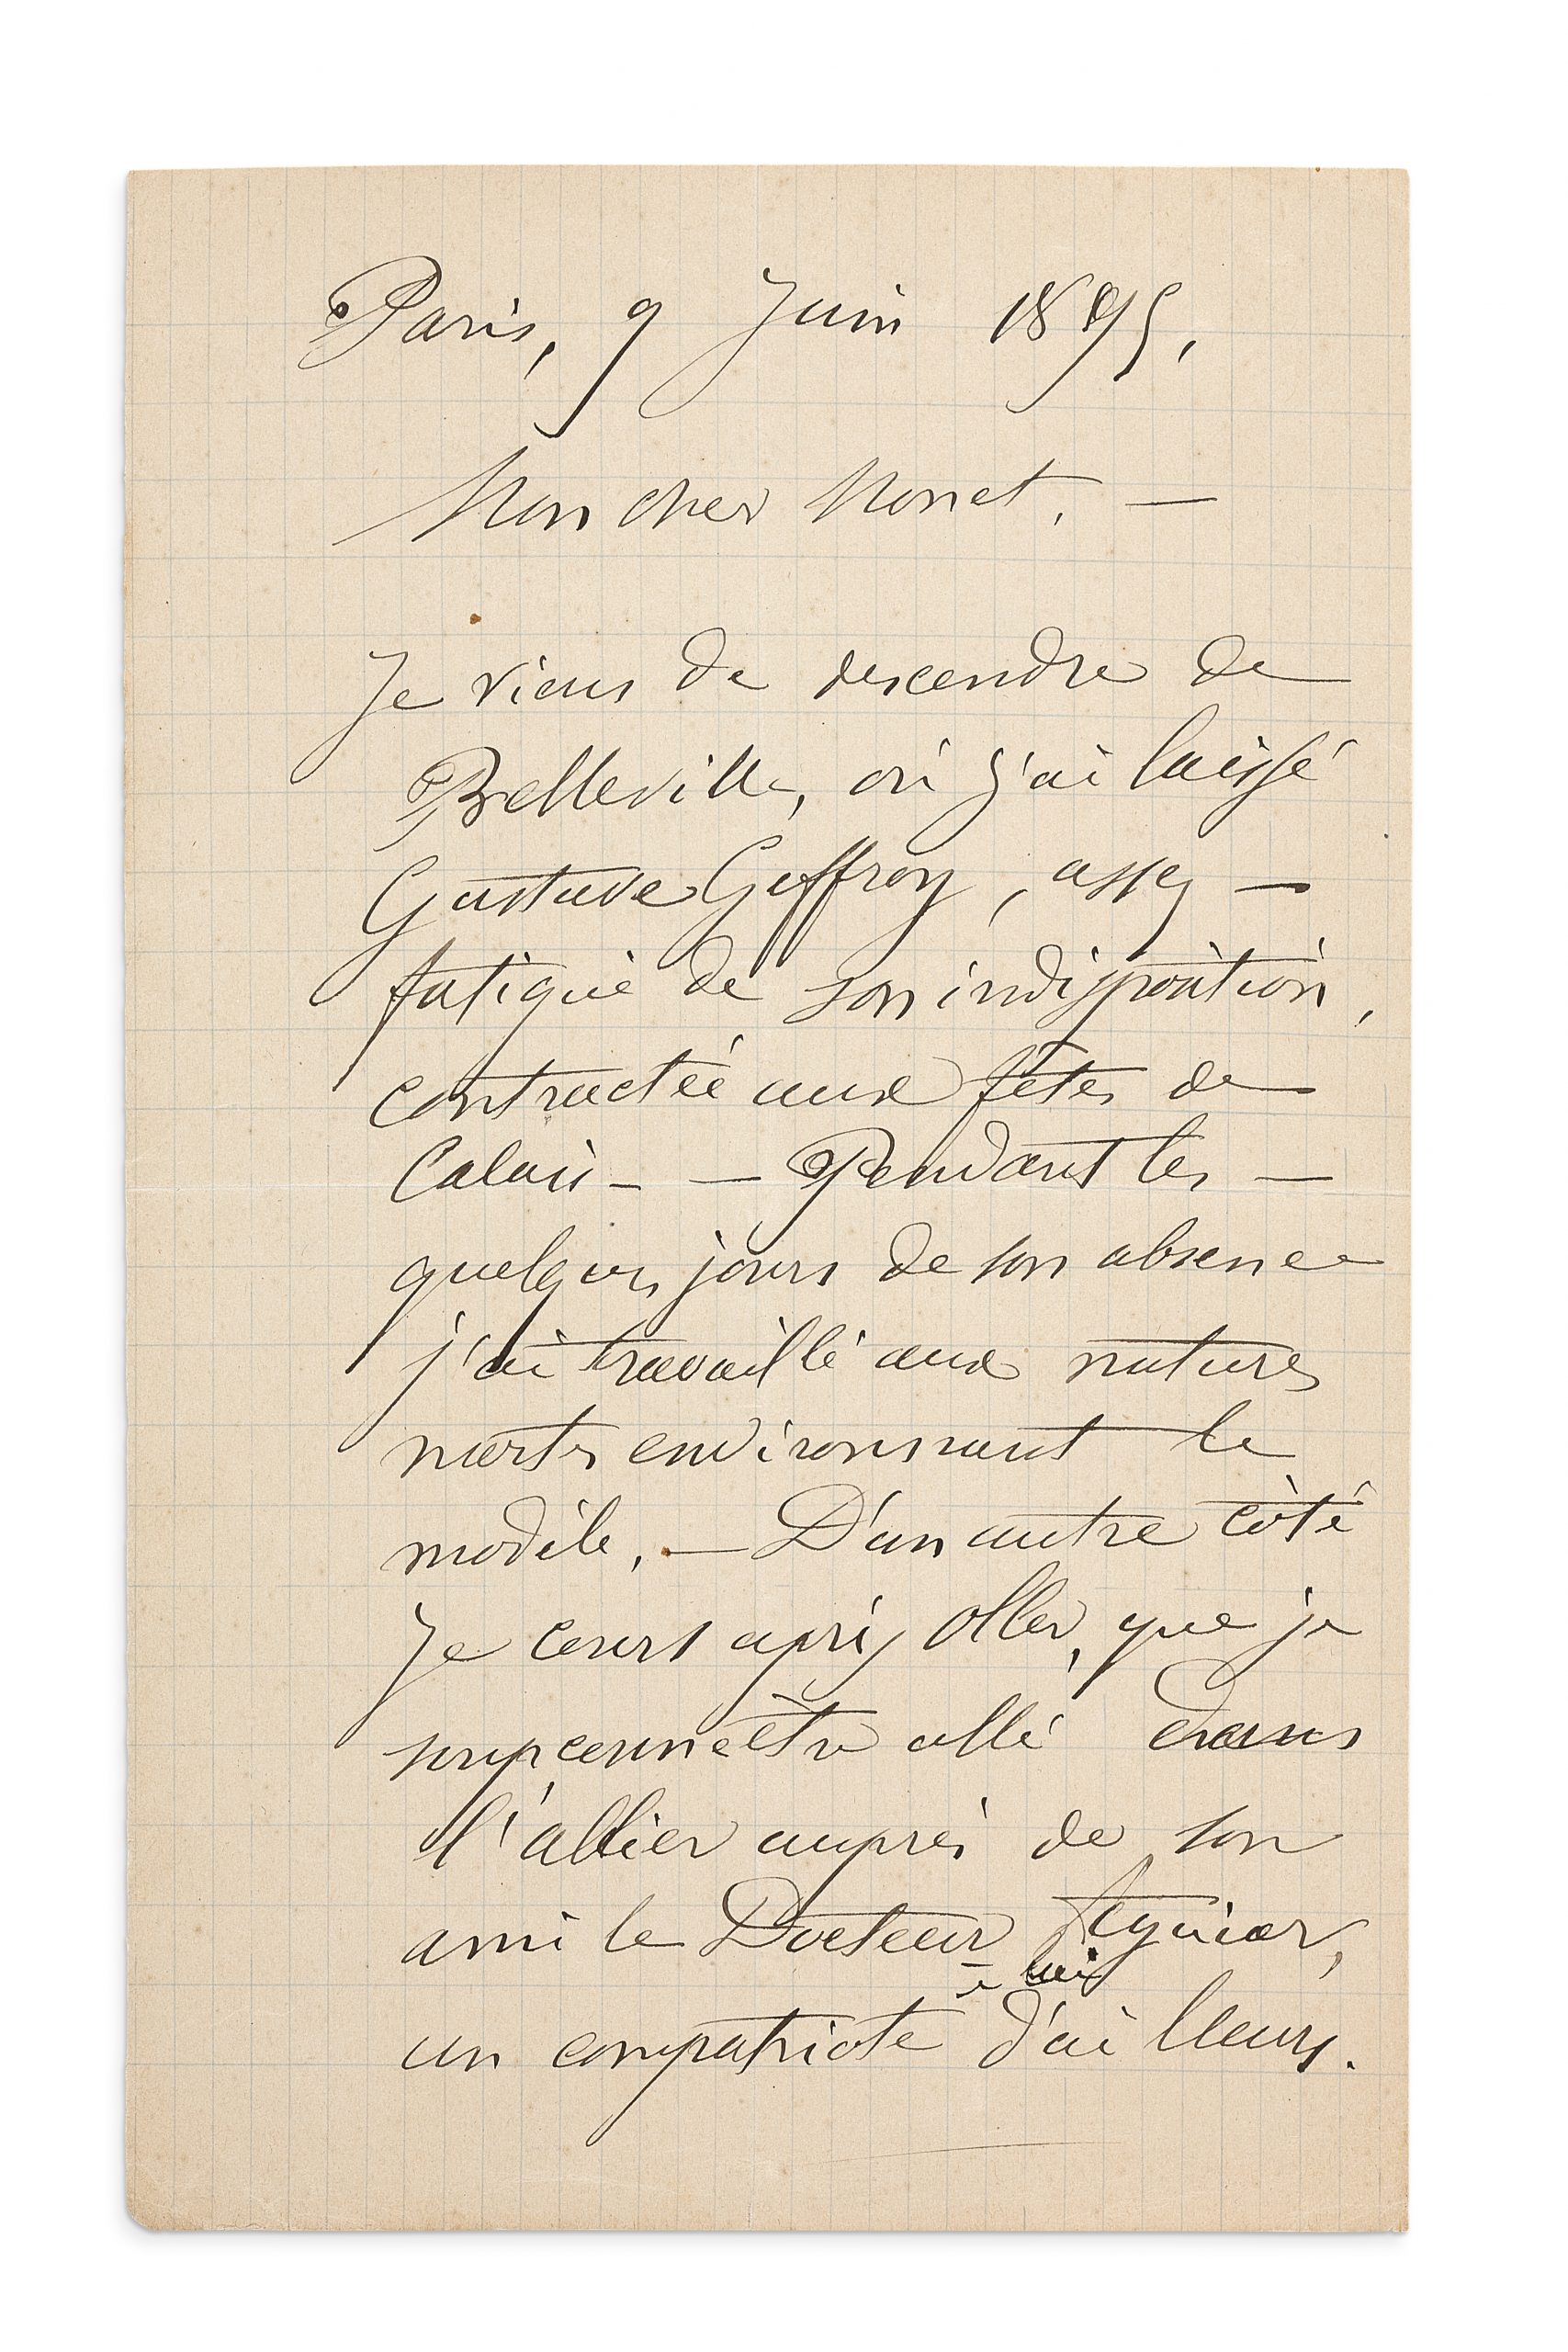 Paris, 9 Juin 1895,
Mon cher Monet, —
Je viens de descendre de
Belleville, où j'ai laissé
Gustave Geffroy, assez —
fatigué de son indisposition,
contractée aux fêtes de
Calais — — Pendant les —
quelques jours de son absence
j'ai travaillé aux natures
mortes environnant le
modèle, — D'un autre côté
Je cours après Oller, que je
soupçonne être allé dans
l'allier auprès de son
ami le Docteur Aguiar,
à lui
un compatriote d'ailleurs.